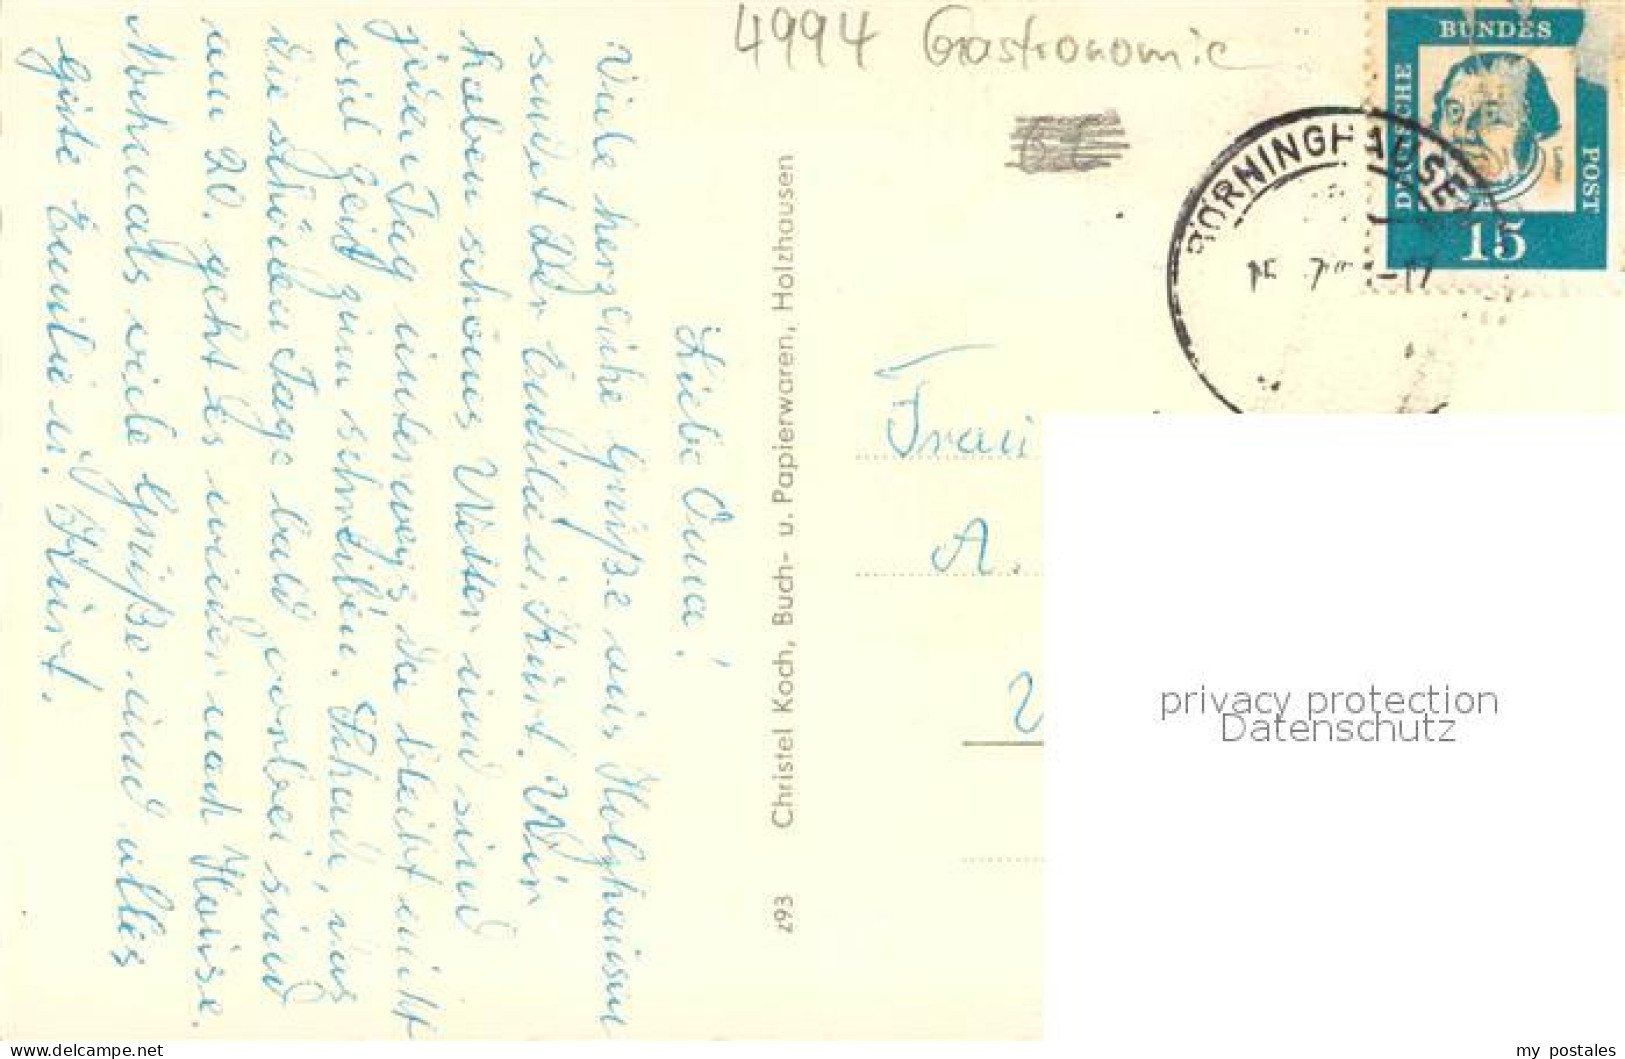 4994 Gastronomie
DEUTSCHE
BUNDES
POST
15
BÖRNINGHAUSEN
Liebe Oma!
Viele herzliche Grüße aus Holzhausen
sendet Dir Emilie u. Kurt. Wir
haben schönes Wetter und sind
jeden Tag unterwegs da bleibt nicht
viel Zeit zum schreiben. Schade, das
die schönen Tage bald vorbei sind
am 20. geht es wieder nach Hause.
Nochmals viele Grüße und alles
Gute Emilie u. Kurt.
293 Christel Koch, Buch- u. Papierwaren, Holzhausen
Frau
A.
privacy protection
Datenschutz
www.delcampe.net
my_postales